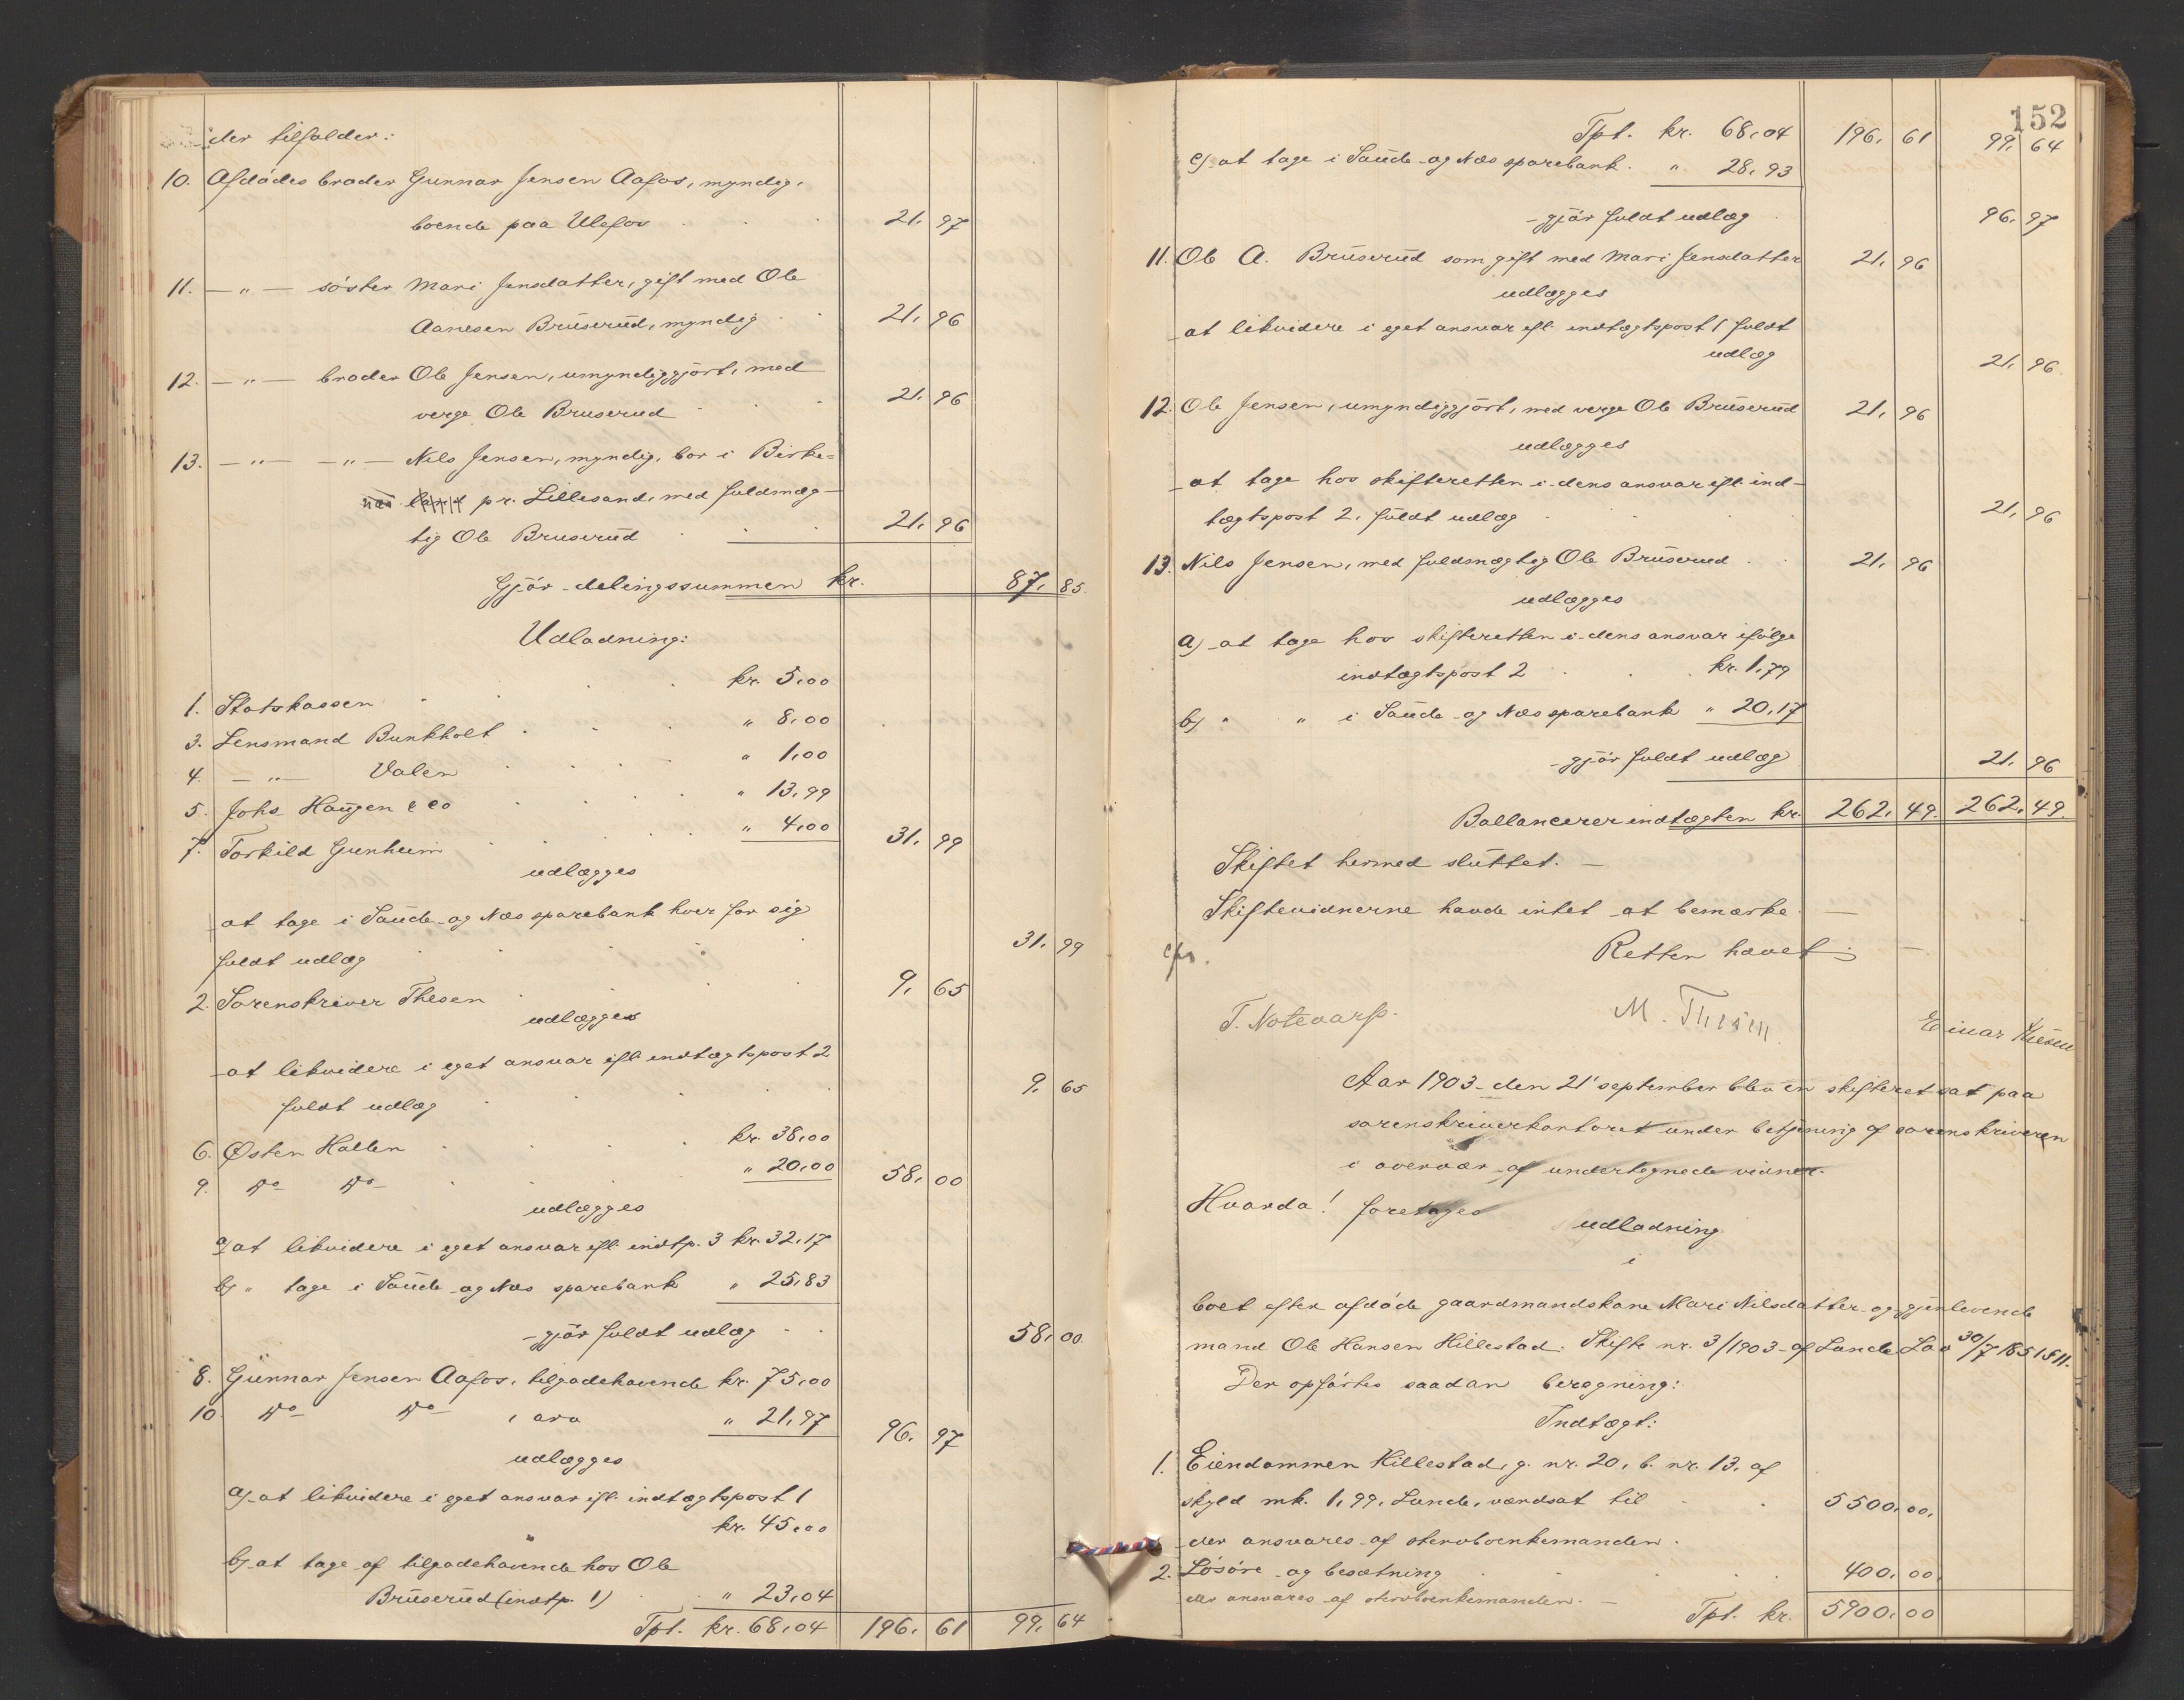 der tilfalder:
10. Afdødes broder Gunnar Jensen Aafos, myndig,
boende paa Ulefos 21,97
11. — " — søster Mari Jensdatter, gift med Ole
Aanesen Bruserud, myndig 21,96
12. — " — broder Ole Jensen, umyndiggjort, med
verge Ole Bruserud 21,96
13. — " — — " — Nils Jensen, myndig, bor i Birke=
næs pr. Lillesand, med fuldmæg-
tig Ole Bruserud 21,96
Gjør delingssummen kr. 87,85
Udlodning:
1. Statskassen kr. 5,00
3. Lensmand Bunkholt " 8,00
4. — " — Valen " 1,00
5. Johs Haugen & Co " 13,99
7. Torkild Gunheim " 4,00 31,99
udlægges
at tage i Saude og Næs sparebank hver for sig
fuldt udlæg 31,99
2. Sorenskriver Thesen 9,65
udlægges
at likvidere i eget ansvar ifl. indtægtspost 2
fuldt udlæg 9,65
6. Østen Hallen kr. 38,00
9. do do " 20,00 58,00
udlægges
a) at likvidere i eget ansvar ifl. indtp. 3 kr. 32,17
b) " tage i Saude og Næs sparebank " 25,83
gjør fuldt udlæg 58,00
8. Gunnar Jensen Aafos, tilgodehavende kr. 75,00
10. do do , arv " 21,97 96,97
udlægges
a) at likvidere i eget ansvar ifl. indtægtspost 1
kr. 45,00
b) at tage af tilgodehavende hos Ole
Bruserud (indtp. 1) " 23,04
Tpt. kr. 68,04 196,61 99,64
152
Tpt. kr. 68,04 196,61 99,64
c) at tage i Saude og Næs sparebank. " 28,93
gjør fuldt udlæg 96,97
11. Ole A. Bruserud som gift med Mari Jensdatter 21,96
udlægges
at likvidere i eget ansvar ifl. indtægtspost 1 fuldt
udlæg 21,96
12. Ole Jensen, umyndiggjort, med verge Ole Bruserud 21,96
udlægges
at tage hos skifteretten i dens ansvar ifl. ind-
tægtspost 2, fuldt udlæg 21,96
13. Nils Jensen, med fuldmægtig Ole Bruserud 21,96
udlægges
a) at tage hos skifteretten i dens ansvar ifølge
indtægtspost 2 kr. 1,79
b) " " i Saude og Næs sparebank " 20,17
gjør fuldt udlæg 21,96
Ballancerer indtægten kr. 262,49. 262,49.
Skiftet hermed sluttet. —
Skiftevidnerne havde intet at bemærke. —
Retten hævet
T. Notevarp. M. Thesen Einar
Aar 1903 den 21' september blev en skifteret sat paa
sorenskriverkontoret under betjening af sorenskriveren
i overvær af undertegnede vidner.
Hvorda! foretoges udlodning
i
boet efter afdøde gaardmandskone Mari Nilsdatter og gjenlevende
mand Ole Hansen Hillestad. Skifte nr. 3/1903 af Lunde Lov 30/7 1851 § 11.
Der opførtes saadan beregning:
Indtægt:
1. Eiendommen Hillestad, g. nr. 20, b. nr. 13, af
skyld mk. 1,99, Lunde, værdsat til 5500,00,
der ansvares af stervboenkemanden.
2. Løsøre og besætning 400,00
der ansvares af stervboenkemanden. —
Tpt. kr. 5900,00